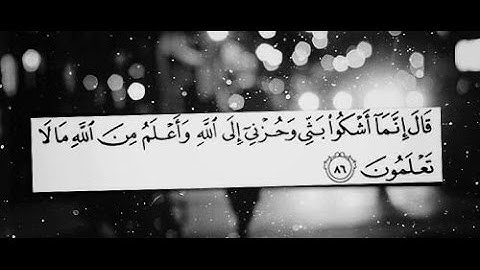 قَالَ إِنَّمَآ أَشْكُوا۟ بَثِّى وَحُزْنِىٓ إِلَى ٱللَّهِ وَأَعْلَمُ مِنَ ٱللَّهِ مَا لَا
تَعْلَمُونَ ٨٦